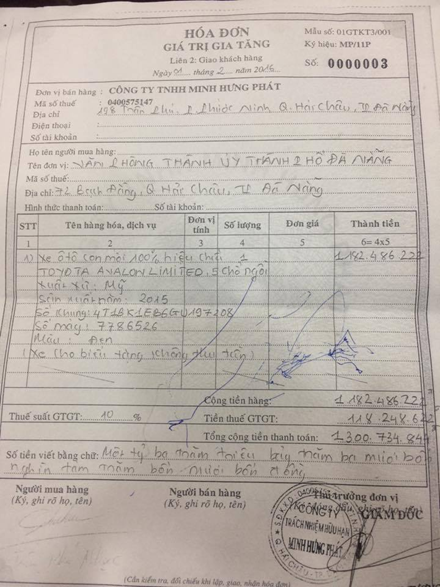 HÓA ĐƠN
GIÁ TRỊ GIA TĂNG
Liên 2: Giao khách hàng
Ngày 01 tháng 2 năm 2016
Mẫu số: 01GTKT3/001
Ký hiệu: MP/11P
Số: 0000003
Đơn vị bán hàng : CÔNG TY TNHH MINH HƯNG PHÁT
Mã số thuế : 0400575147
Địa chỉ : 128 Trần Phú, P Phước Ninh Q. Hải Châu, TP Đà Nẵng
Điện thoại :
Số tài khoản :
Họ tên người mua hàng:
Tên đơn vị: VĂN PHÒNG THÀNH ỦY THÀNH PHỐ ĐÀ NẴNG
Mã số thuế:
Địa chỉ: 72 Bạch Đằng, Q Hải Châu, TP Đà Nẵng
Hình thức thanh toán: Số tài khoản:
STT Tên hàng hóa, dịch vụ Đơn vị tính Số lượng Đơn giá Thành tiền
1 2 3 4 5 6= 4x5
1) Xe ôtô con mới 100% hiệu chữ 1 1.182.486.222
TOYOTA AVALON LIMITED, 5 chỗ ngồi
Xuất xứ: Mỹ
Sản xuất năm: 2015
Số khung: 4T1BK1EB6GU197208
Số máy: 7786526
Màu: Đen
(Xe cho biếu tặng không thu tiền)
Cộng tiền hàng: 1.182.486.222
Thuế suất GTGT: 10 % Tiền thuế GTGT: 118.248.622
Tổng cộng tiền thanh toán: 1.300.734.844
Số tiền viết bằng chữ: Một tỷ ba trăm triệu bảy trăm ba mươi bốn
nghìn tám trăm bốn mươi bốn đồng
Người mua hàng
(Ký, ghi rõ họ, tên)
Người bán hàng
(Ký, ghi rõ họ, tên)
Thủ trưởng đơn vị
GIÁM ĐỐC
CÔNG TY
TRÁCH NHIỆM HỮU HẠN
MINH HƯNG PHÁT
(Cần kiểm tra, đối chiếu khi lập, giao, nhận hóa đơn)